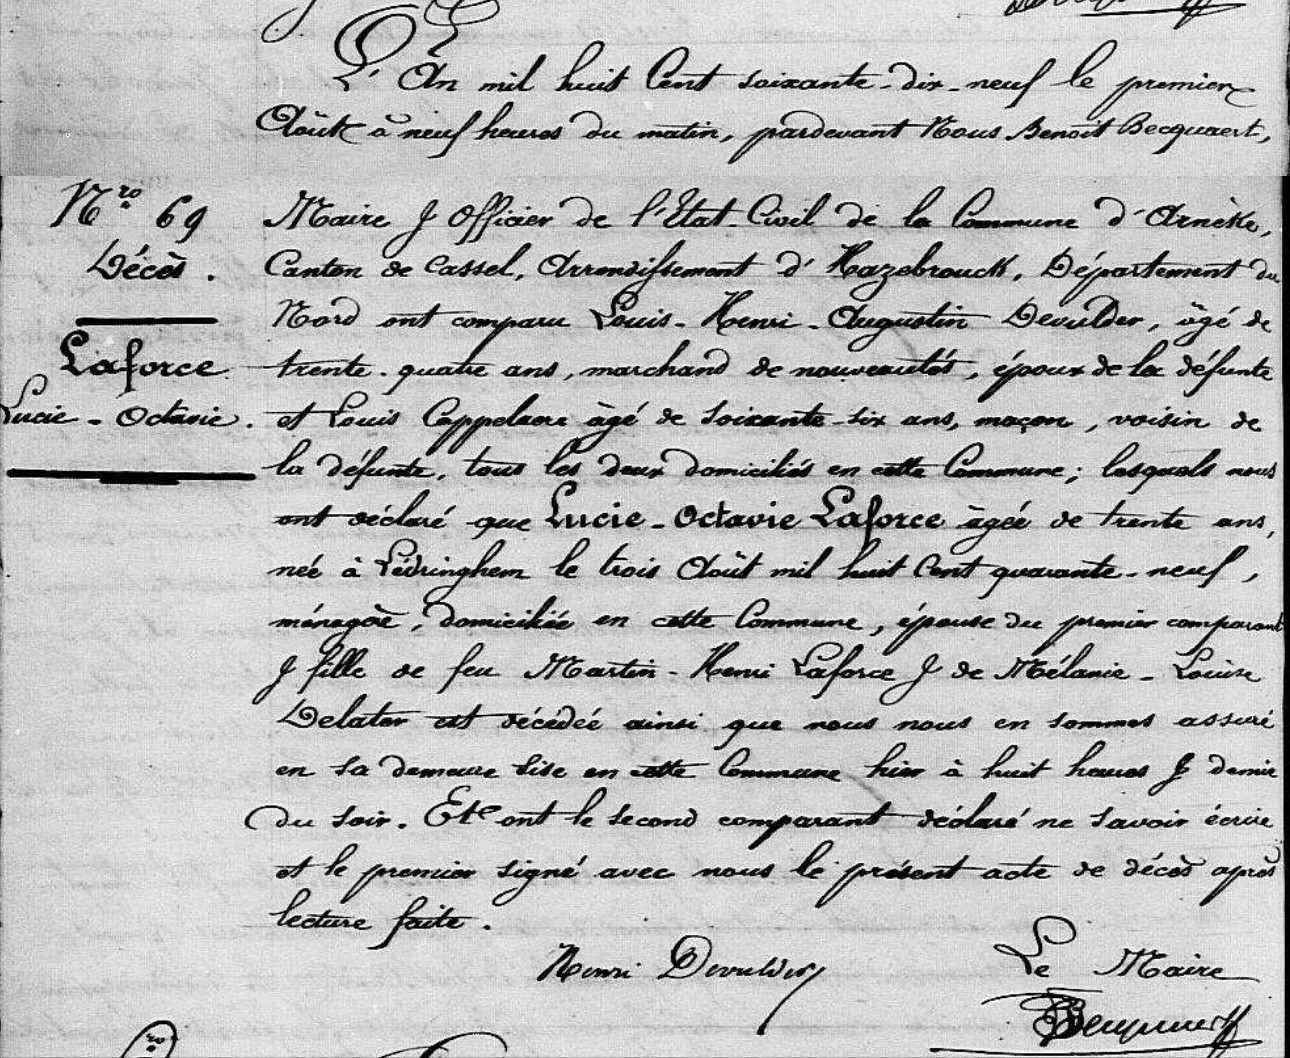 L'An mil huit Cent soixante-dix-neuf le premier
Août à neuf heures du matin, pardevant Nous Benoit Becquaert,
Nro 69
Décès.
Laforce
Lucie-Octavie.
Maire & Officier de l'Etat-Civil de la Commune d'Arnèke,
Canton de Cassel, Arrondissement d'Hazebrouck, Département du
Nord ont comparu Louis-Henri-Augustin Devulder, âgé de
trente-quatre ans, marchand de nouveautés, époux de la défunte
et Louis Cappelaere âgé de soixante-six ans, maçon, voisin de
la défunte, tous les deux domiciliés en cette Commune; lesquels nous
ont déclaré que Lucie-Octavie Laforce âgée de trente ans,
née à Lédringhem le trois Août mil huit Cent quarante-neuf,
ménagère, domiciliée en cette Commune, épouse du premier comparant
& fille de feu Martin-Henri Laforce & de Mélanie-Louise
Delater est décédée ainsi que nous nous en sommes assuré
en sa demeure sise en cette Commune hier à huit heures & demie
du soir. Et ont le second comparant déclaré ne savoir écrire
et le premier signé avec nous le présent acte de décès après
lecture faite.
Henri Devulder
Le Maire
Becquaert